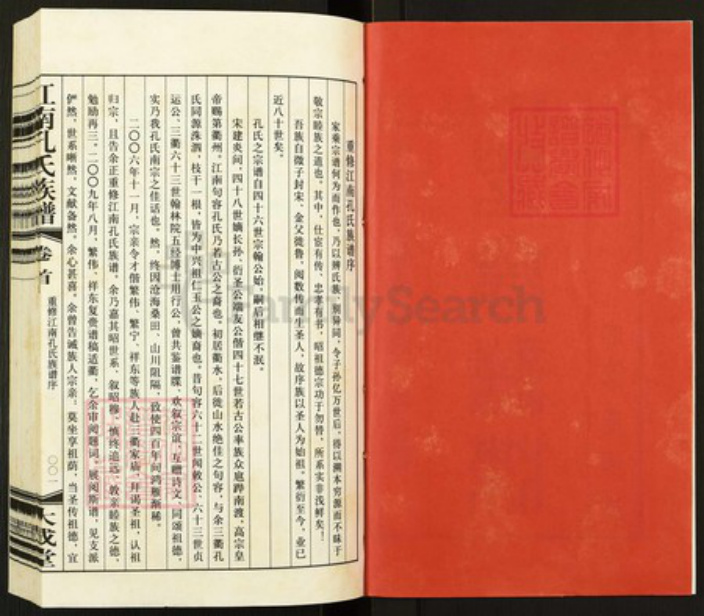 重修江南孔氏族谱序
家乘宗谱何为而作也，乃以辨氏族，别异同，令子孙亿万世后，得以溯本穷源而不昧于
敬宗睦族之道也。其中，仕宦有传，忠孝有书，昭祖德宗功于勿替，所系实非浅鲜矣！
吾族自微子封宋，金父徙鲁，阅数传而生圣人，故序族以圣人为始祖。繁衍至今，业已
近八十世矣。
孔氏之宗谱自四十六世宗翰公始，嗣后相继不泯。
宋建炎间，四十八世嫡长孙、衍圣公端友公偕四十七世若古公率族众扈跸南渡，高宗皇
帝赐第衢州。江南句容孔氏乃若古公之裔也。初居衢水，后徙山水绝佳之句容，与余三衢孔
氏同源洙泗，枝干一根，皆为中兴祖仁玉公之嫡裔也。昔句容六十二世闻敕公、六十三世贞
运公、三衢六十三世翰林院五经博士用行公，曾共鉴谱牒，欢叙宗谊，互赠诗文，同颂祖德，
实乃我孔氏南宗之佳话也。然，终因沧海桑田、山川阻隔，致使四百年间鸿雁渐稀。
二〇〇六年十一月，宗亲令才偕繁伟、繁宁、祥东等族人赴三衢家庙，拜谒圣祖，认祖
归宗，且告余正重修江南孔氏族谱。余乃嘉其昭世系、叙昭穆、慎终追远、敦亲睦族之德，
勉励再三。二〇〇九年八月，繁伟、祥东复赍谱稿适衢，乞余审阅题词。展阅斯谱，见支派
俨然，世系晰然，文献备然，余心甚喜。余曾告诫族人宗亲：莫坐享祖荫，当圣传祖德，宜
江南孔氏族谱
卷首
重修江南孔氏族谱序
〇〇一
大成堂
FamilySearch